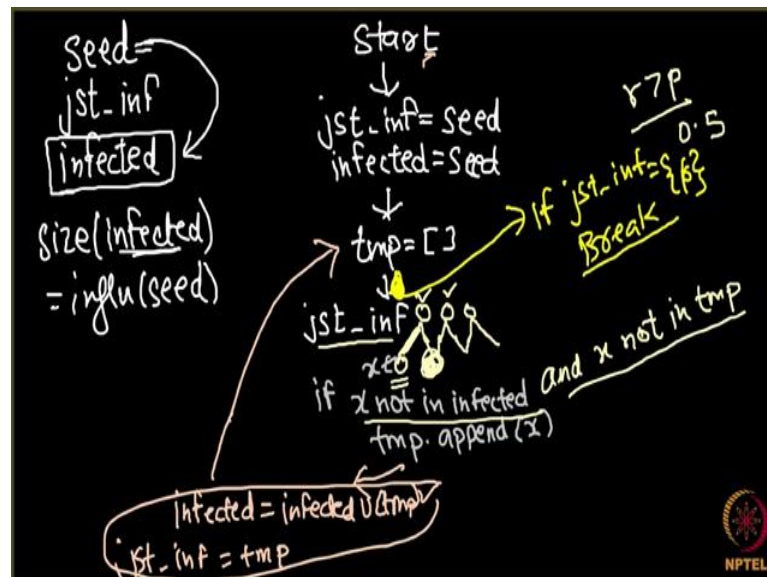 seed =
jst_inf
infected
size(infected)
= influ(seed)
start
jst_inf = seed
infected = seed
tmp = [ ]
jst_inf
x
if x not in infected and x not in tmp
tmp.append(x)
infected = infected ∪ (tmp)
jst_inf = tmp
r>p
0.5
If jst_inf = {ϕ}
Break
NPTEL